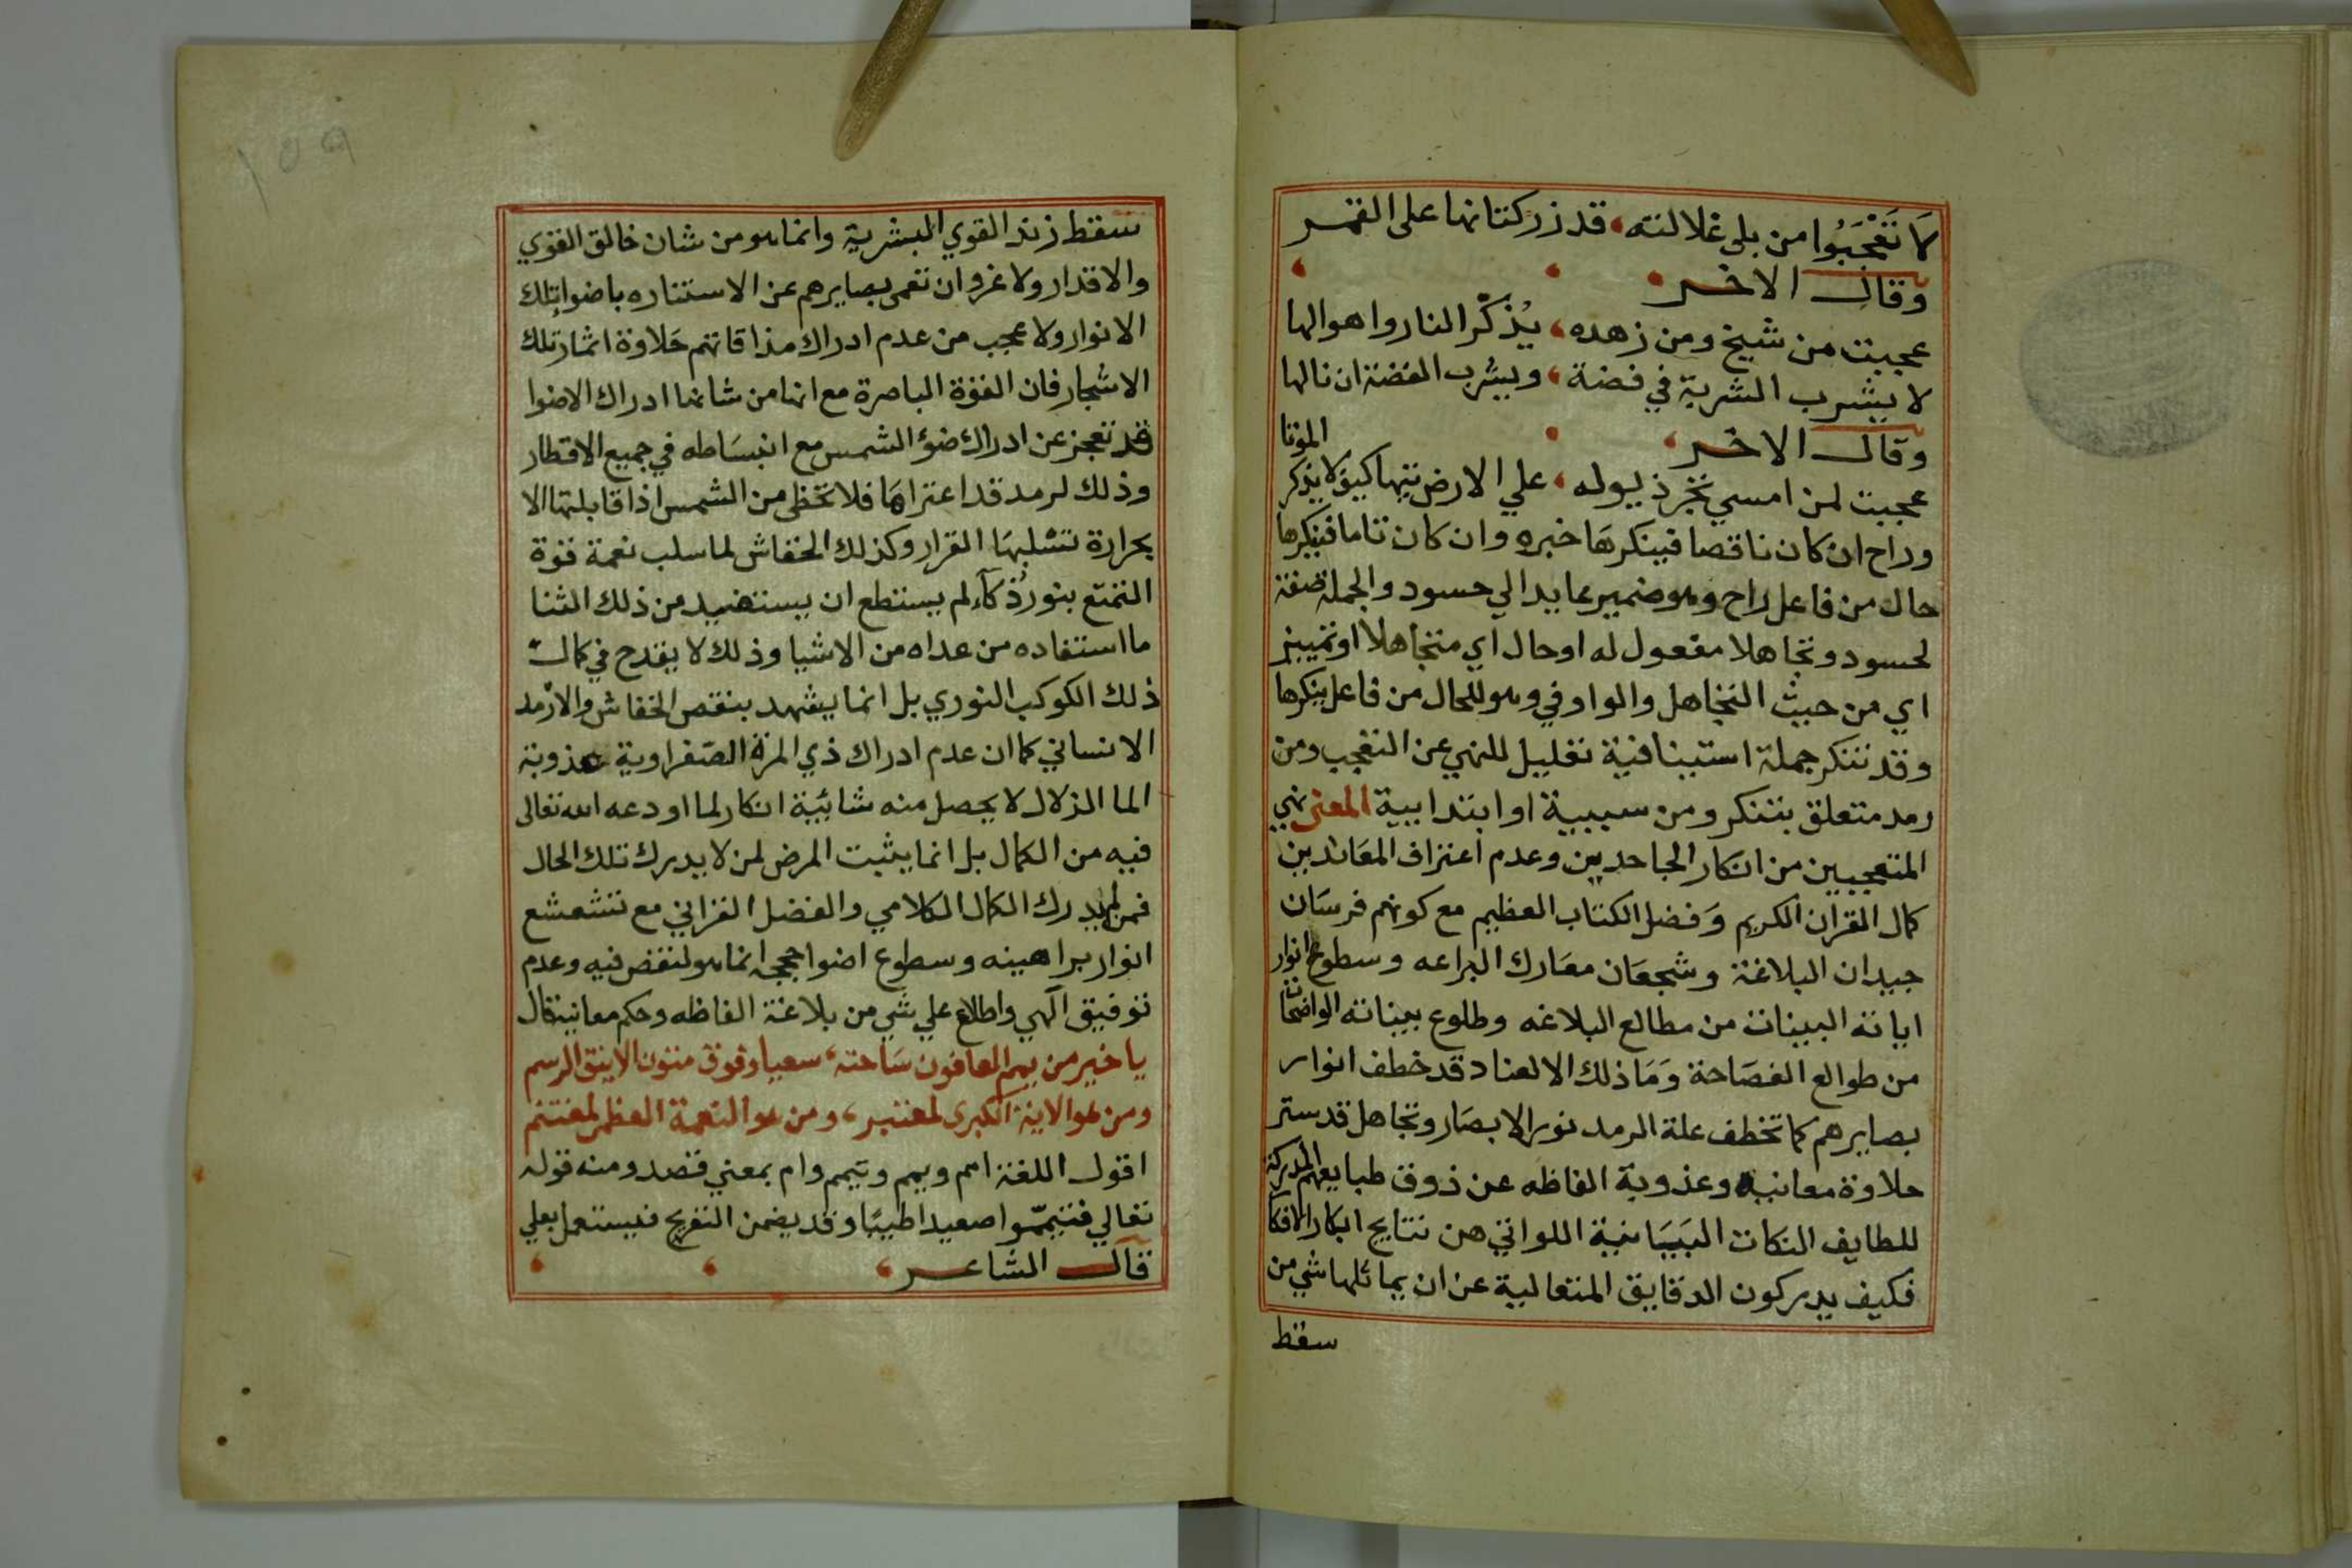 لا تَعْجَبُوا من بلى غلالته، قد زر كتانها على القمر
وقال الاخر
عجبت من شيخ ومن زهده، يُذكّر النار واهوالها
لا يشرب الشربة في فضة، ويشرب الفضة ان نالها
وقال الاخر
عجبت لمن امسي يجر ذيوله، علي الارض تيها كيف لا يذكر الموتا
وراح ان كان ناقصا فينكرها خبره وان كان تاما فينكرها
حال من فاعل راح وهو ضمير عايد الي حسود والجملة صفة
لحسود وتجاهلا مفعول له او حال اي متجاهلا او تمييز
اي من حيث التجاهل والواو في وهو للحال من فاعل ينكرها
وقد تنكر جملة استينافية تعليل للنهي عن التعجب ومن
رمد متعلق بتنكر ومن سببية او ابتدايية المعنى نهي
المتعجبين من انكار الجاحدين وعدم اعتراف المعاندين
كمال القران الكريم وَفضل الكتاب العظيم مع كونهم فرسَان
جيدان البلاغة وشجعَان معَارك البراعه وسطوع انوار
اياته البينات من مطالع البلاغه وطلوع بيناته الواضحات
من طوالع الفصَاحة وَمَا ذلك الا لعناد قد خطف انوار
بصايرهم كما تخطف علة الرمد نور الابصَار وتجاهل قد ستر
حلاوة معانيه وعذوبة الفاظه عن ذوق طبايعهم المدركة
للطايف النكات البَيَانية اللواتي هن نتايج ابكار الافكا
فكيف يدركون الدقايق المتعالية عن ان يماثلها شي من
سقط
سقط زند القوي البشرية وانما هو من شان خالق القوي
والاقدار ولا غرو ان تعمى بصايرهم عن الاستناره باضوا تلك
الانوار ولا عجب من عدم ادراك مذاقاتهم حَلاوة اثمار تلك
الاشجار فان القوة الباصرة مع انها من شانها ادراك الاضوا
قد تعجز عن ادراك ضوء الشمس مع انبسَاطه في جميع الاقطار
وذلك لرمد قد اعتراهَا فلا تحظى من الشمس اذا قابلتها الا
بحرارة تسْلبهَا القرار وكذلك الخفاش لما سلب نعمة قوة
التمتع بنور ذُكآء لم يستطع ان يستضيد من ذلك الثنا
ما استفاده من عداه من الاشيا وذلك لا يقدح في كمال
ذلك الكوكب النوري بل انما يشهد بنقص الخفاش والارمد
الانساني كما ان عدم ادراك ذي المرة الصفراوية عذوبة
الما الزلال لا يحصل منه شائبة انكار لما اودعه الله تعالى
فيه من الكمال بل انما يثبت المرض لمن لا يدرك تلك الحال
فمن لم يدرك الكمال الكلامي والفضل القراني مع تشعشع
انوار براهينه وسطوع اضوا حججه انما هو لنقص فيه وعدم
توفيق آلهي واطلاع علي شي من بلاغة الفاظه وحكم معانيه قال
يا خير من يمم العافون سَاحته، سعيا وفوق متون الاينق الرسم
ومن هو الاية الكبرى لمعتبر، ومن هو النعمة العظمى لمغتنم
اقول اللغة امم ويمم وتيمم وام بمعني قصد ومنه قوله
تعالي فتيمّموا صعيدا طيبًا وقد يضمن التفريج فيستعمل بعلي
قال الشاعر